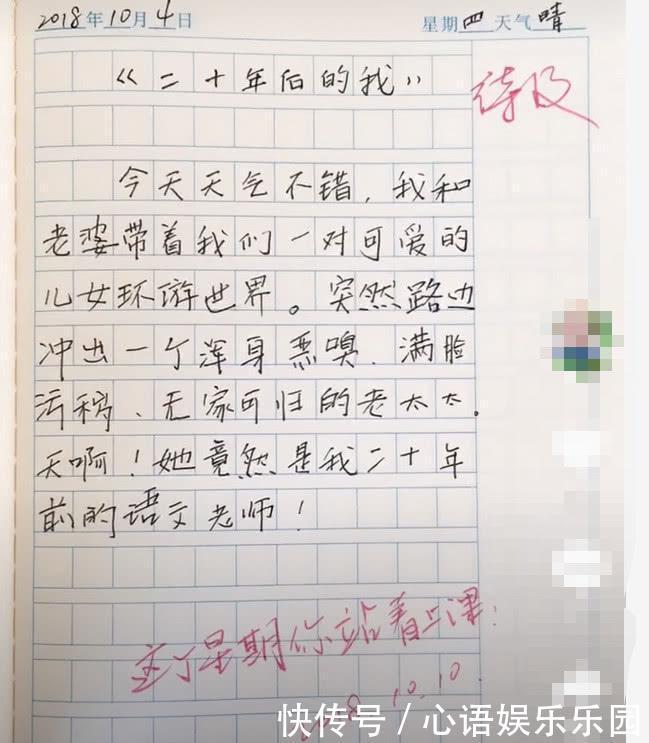 2018年10月4日 星期四 天气晴
《二十年后的我》
待及
今天天气不错，我和
老婆带着我们一对可爱的
儿女环游世界。突然路边
冲出一个浑身恶嗅、满脸
污秽、无家可归的老太太。
天啊！她竟然是我二十年
前的语文老师！
这个星期你站着上课！
2018.10.10.
快传号/心语娱乐乐园